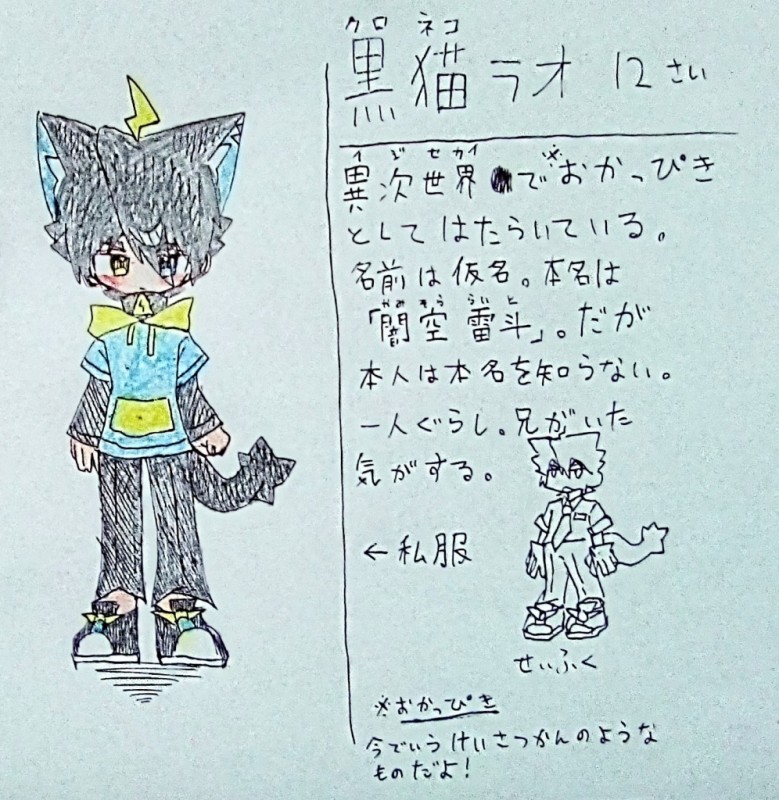 クロ ネコ
黒猫 ラオ 12さい
イジセカイ
異次世界で※おかっぴき
としてはたらいている。
名前は仮名。本名は
やみそら らいと
「闇空 雷斗」。だが
本人は本名を知らない。
一人ぐらし。兄がいた
気がする。
←私服
せいふく
※おかっぴき
今でいうけいさつかんのような
ものだよ!